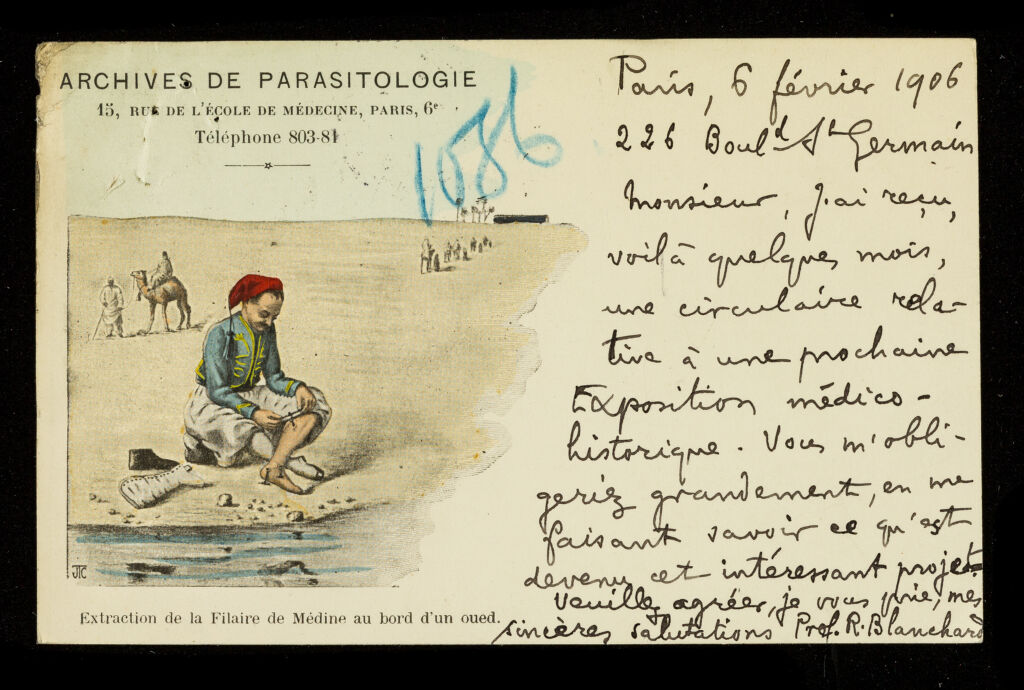 ARCHIVES DE PARASITOLOGIE
15, RUE DE L'ÉCOLE DE MÉDECINE, PARIS, 6e
Téléphone 803-81
1086
JTC
Extraction de la Filaire de Médine au bord d'un oued.
Paris, 6 février 1906
226 Bould St Germain
Monsieur, J'ai reçu,
voilà quelques mois,
une circulaire rela-
tive à une prochaine
Exposition médico-
historique. Vous m'obli-
geriez grandement, en me
faisant savoir ce qu'est
devenu cet intéressant projet.
Veuillez agréer, je vous prie, mes
sincères salutations Prof. R. Blanchard